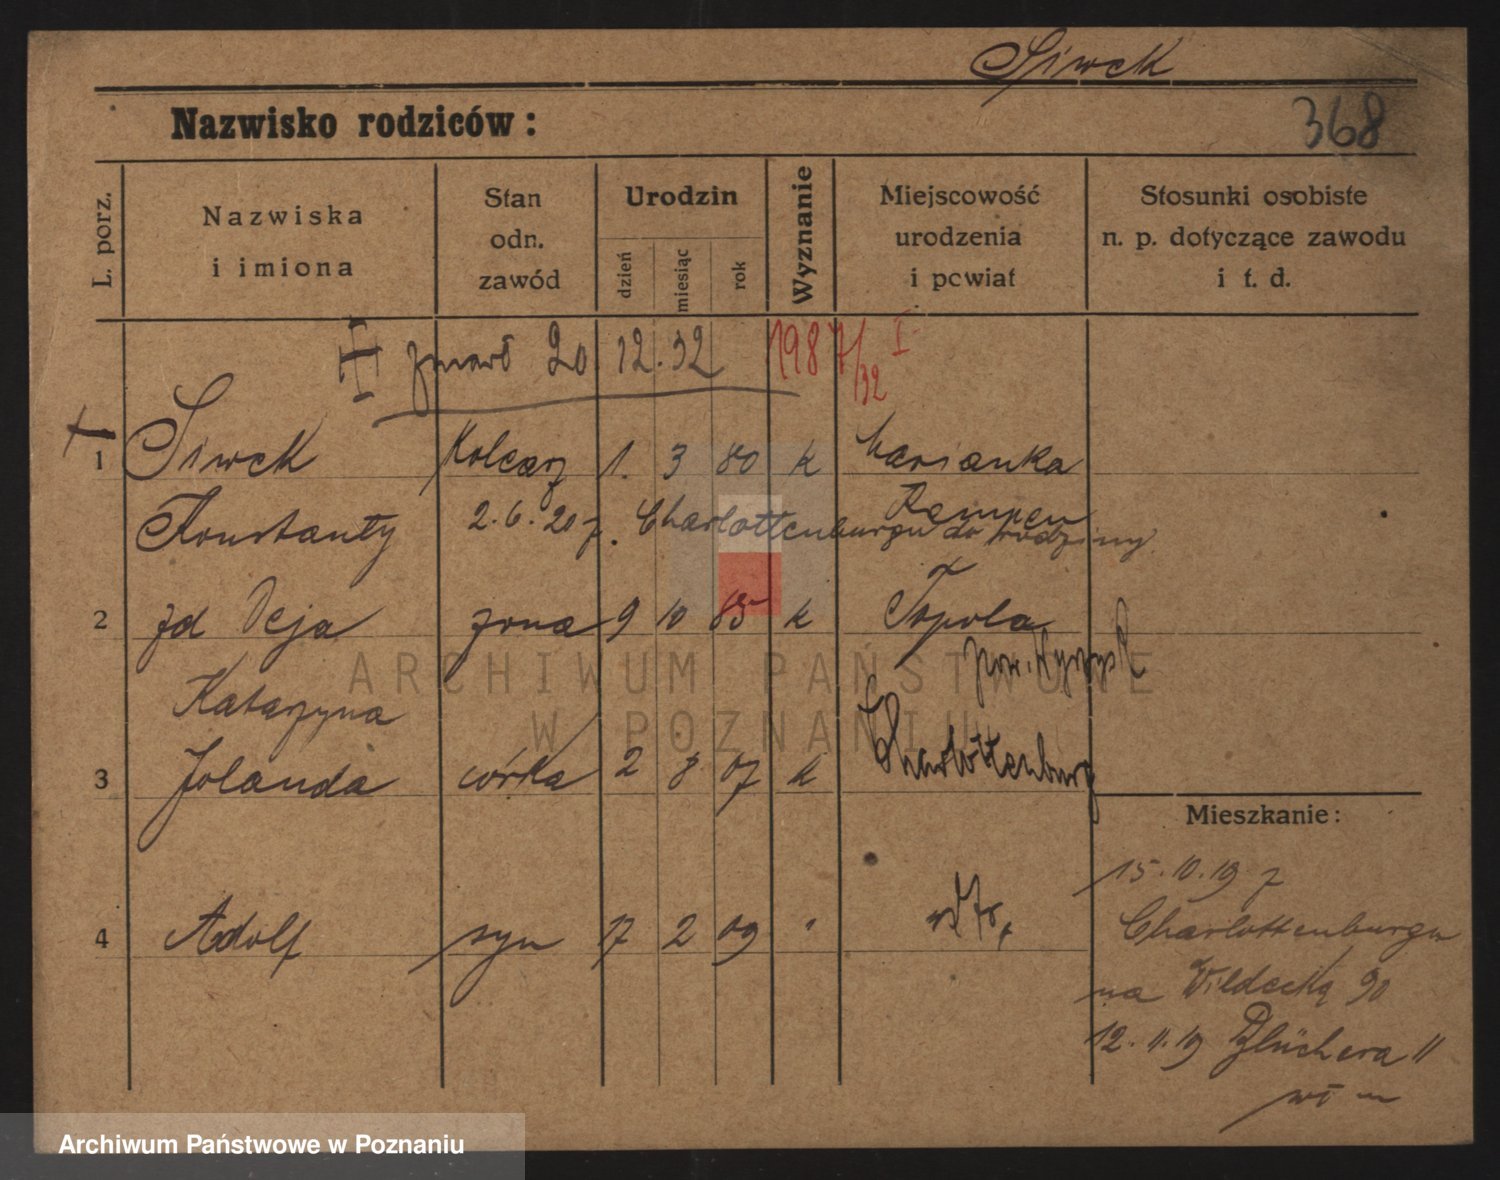 Siwek
Nazwisko rodziców:
368
L. porz.
Nazwiska
i imiona
Stan
odn.
zawód
Urodzin
dzień
miesiąc
rok
Wyznanie
Miejscowość
urodzenia
i powiat
Stosunki osobiste
n. p. dotyczące zawodu
i t. d.
zmarł 20 12.32 1987/32 I
1 Siwek 1. 3 80 k Marianka
Konstanty 2.6.20 z Charlottenburgu do rodziny
Kempen
2 zd Deja żona 9 10 85 k Topola
pow. Wyrzysk
Katarzyna
3 Jolanda córka 2 8 07 k Charlottenburg
Mieszkanie:
4 Adolf syn 17 2 09 "
15.10.19 z
Charlottenburgu
na Wildecką 90
12.11.19 Blüchera 11
ARCHIWUM PAŃSTWOWE
W POZNANIU
Archiwum Państwowe w Poznaniu